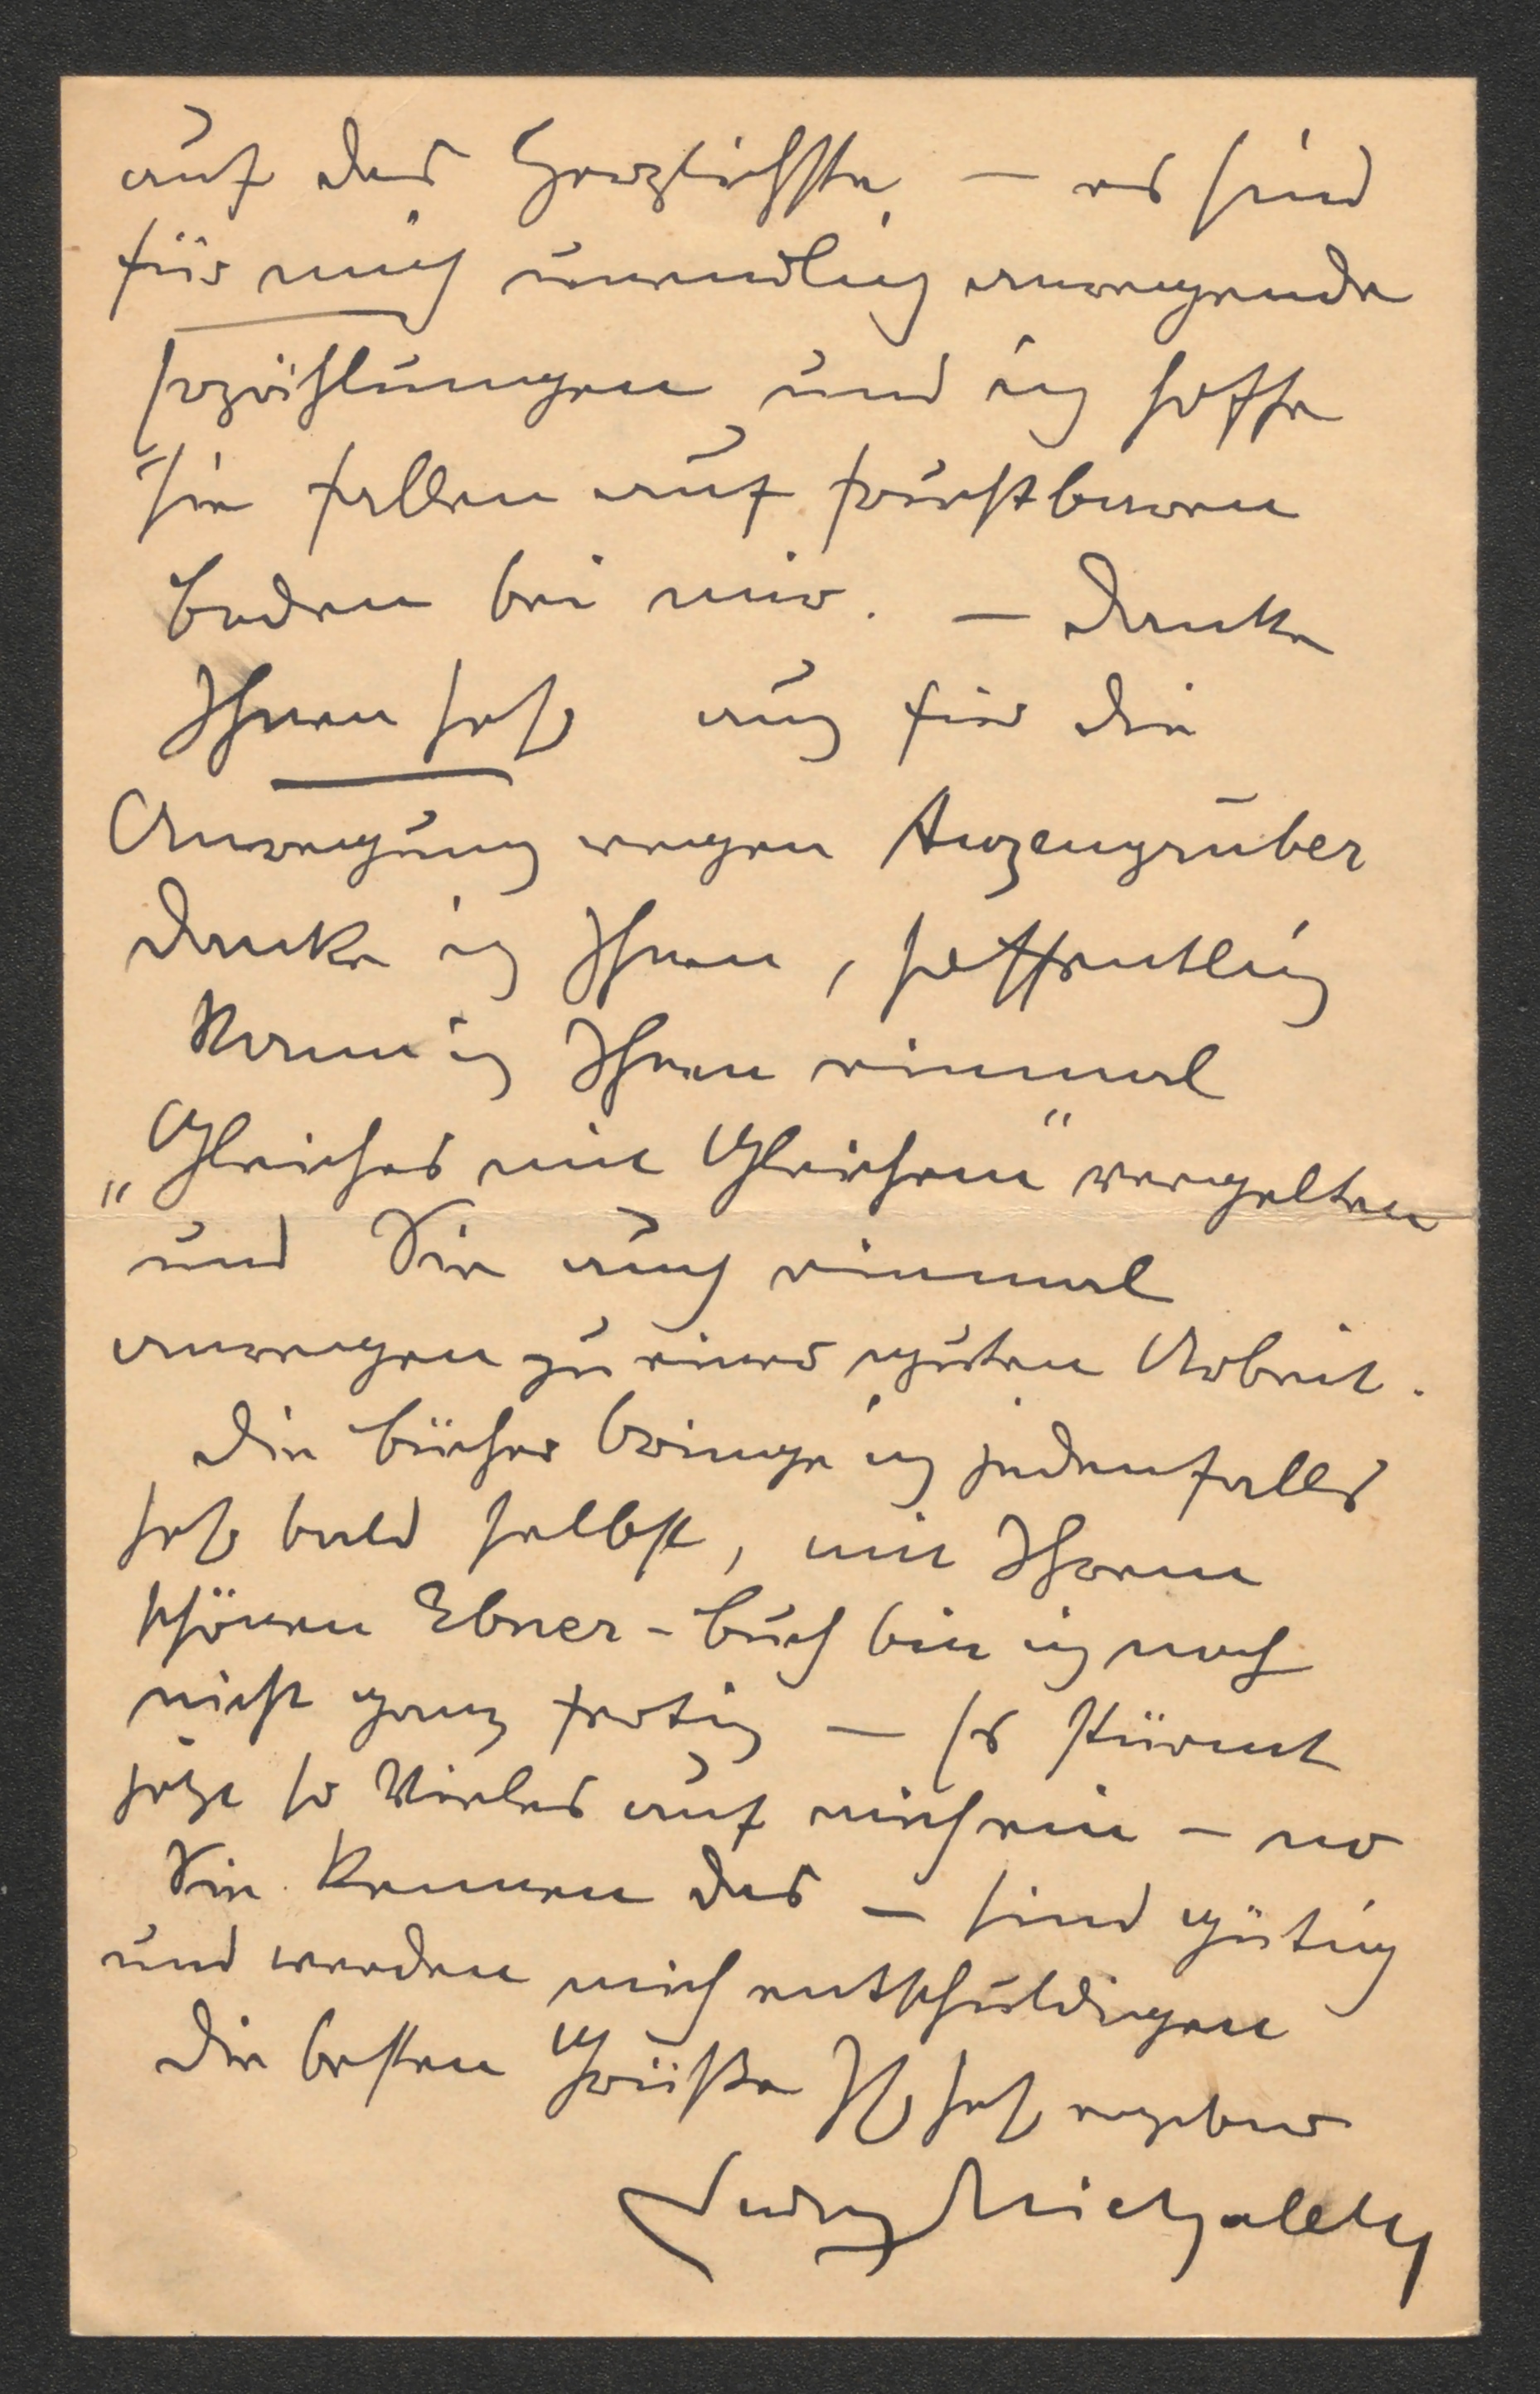 auf das Herzlichste – es sind
für mich unendlich anregende
Erzählungen und ich hoffe
sie fallen auf fruchtbaren
Boden bei mir. – Danke
Ihnen sehr auch für die
Anregung wegen Anzengruber
danke ich Ihnen, hoffentlich
kann ich Ihnen einmal
„Gleiches mit Gleichem“ vergelten
und Sie auch einmal
anregen zu einer guten Arbeit.
Die Bücher bringe ich jedenfalls
sehr bald selbst, mit Ihrem
schönen Ebner-Buch bin ich noch
nicht ganz fertig – es stürmt
jetzt so Vieles auf mich ein – no
Sie kennen das – sind gütig
und werden mich entschuldigen
Die besten Grüße Ihr sehr ergebener
Ludwig Michalek